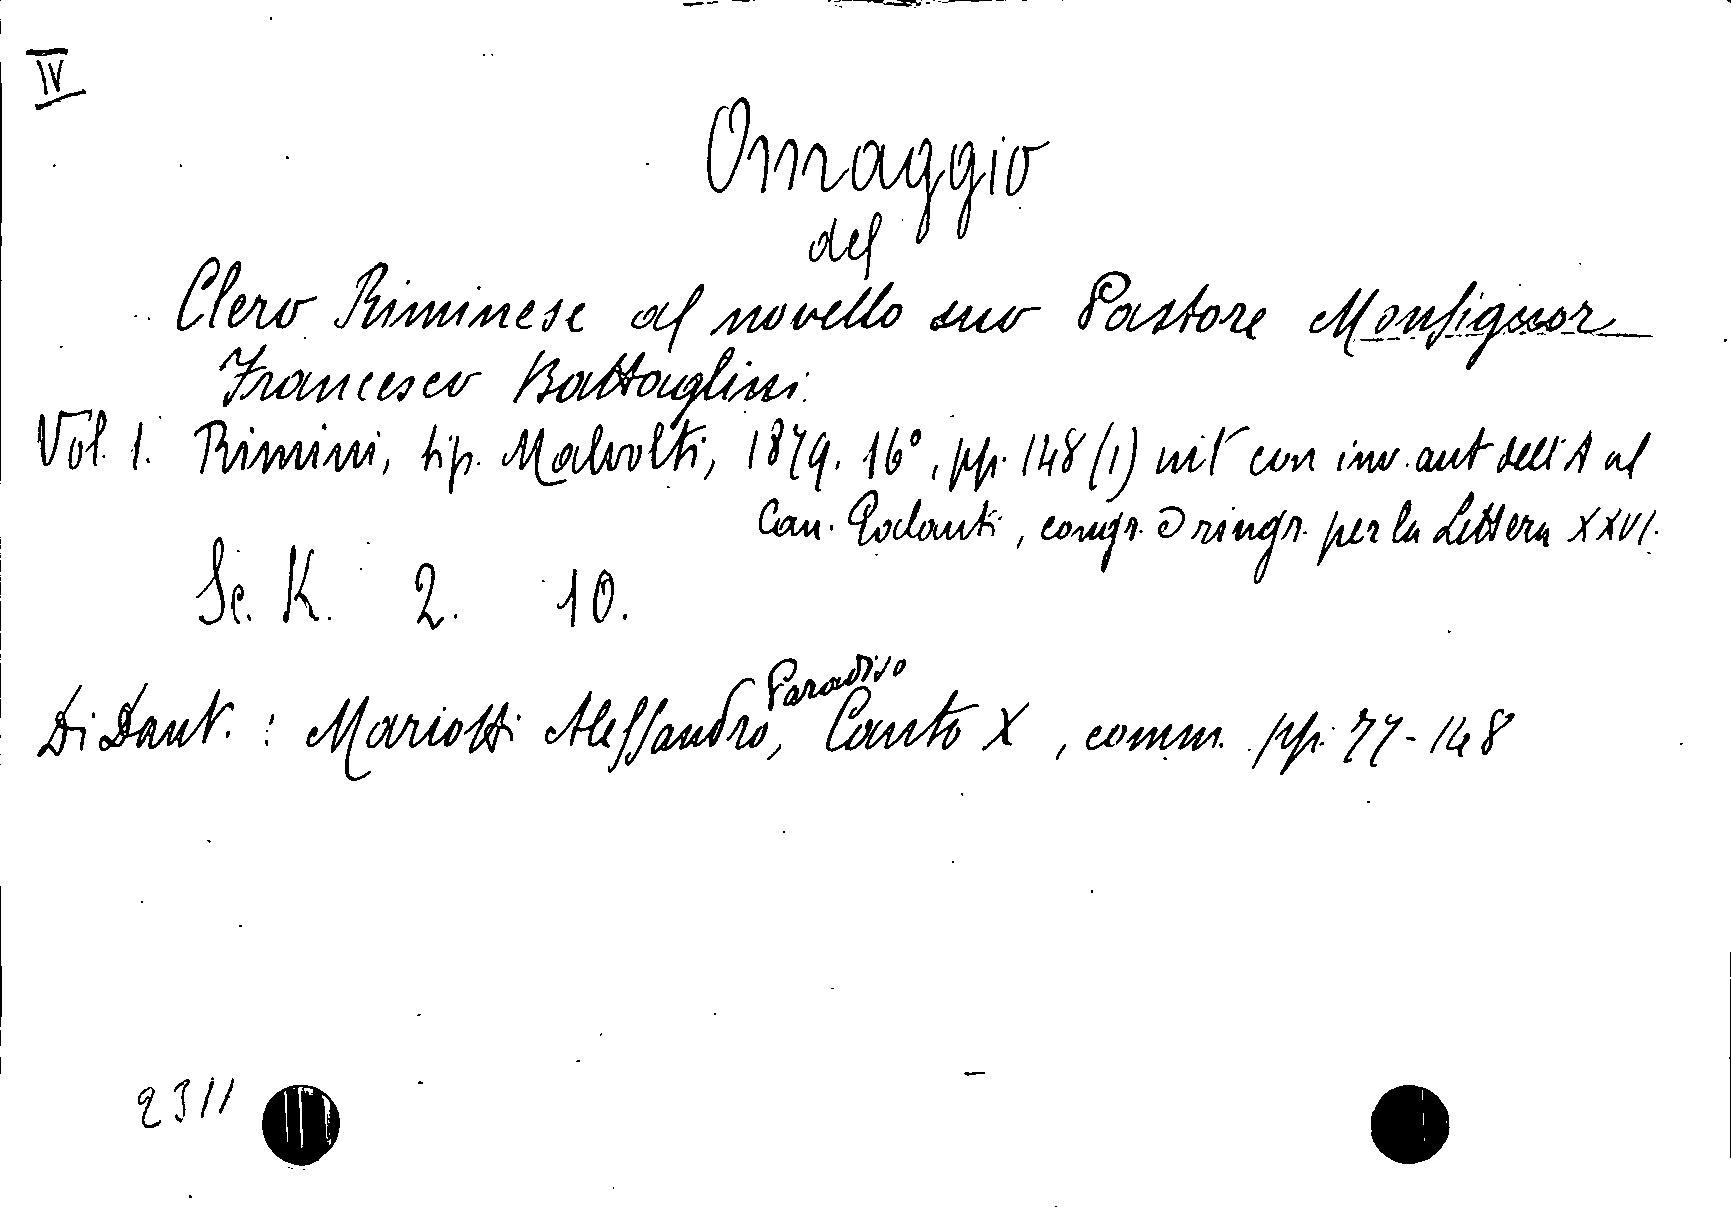 IV
Omaggio
del
Clero Riminese al novello suo Pastore Monsignor
Francesco Battaglini.
Vol. 1. Rimini, tip. Malvolti, 1879. 16°, pp. 148 (1) con inv. aut dell'A al
Can. , congr. ringr. per la Lettera XXVI.
Sc. K. 2. 10.
Di Dant. : Mariotti Alessandro, Paradiso Canto X, comm. pp. 77-148
2311